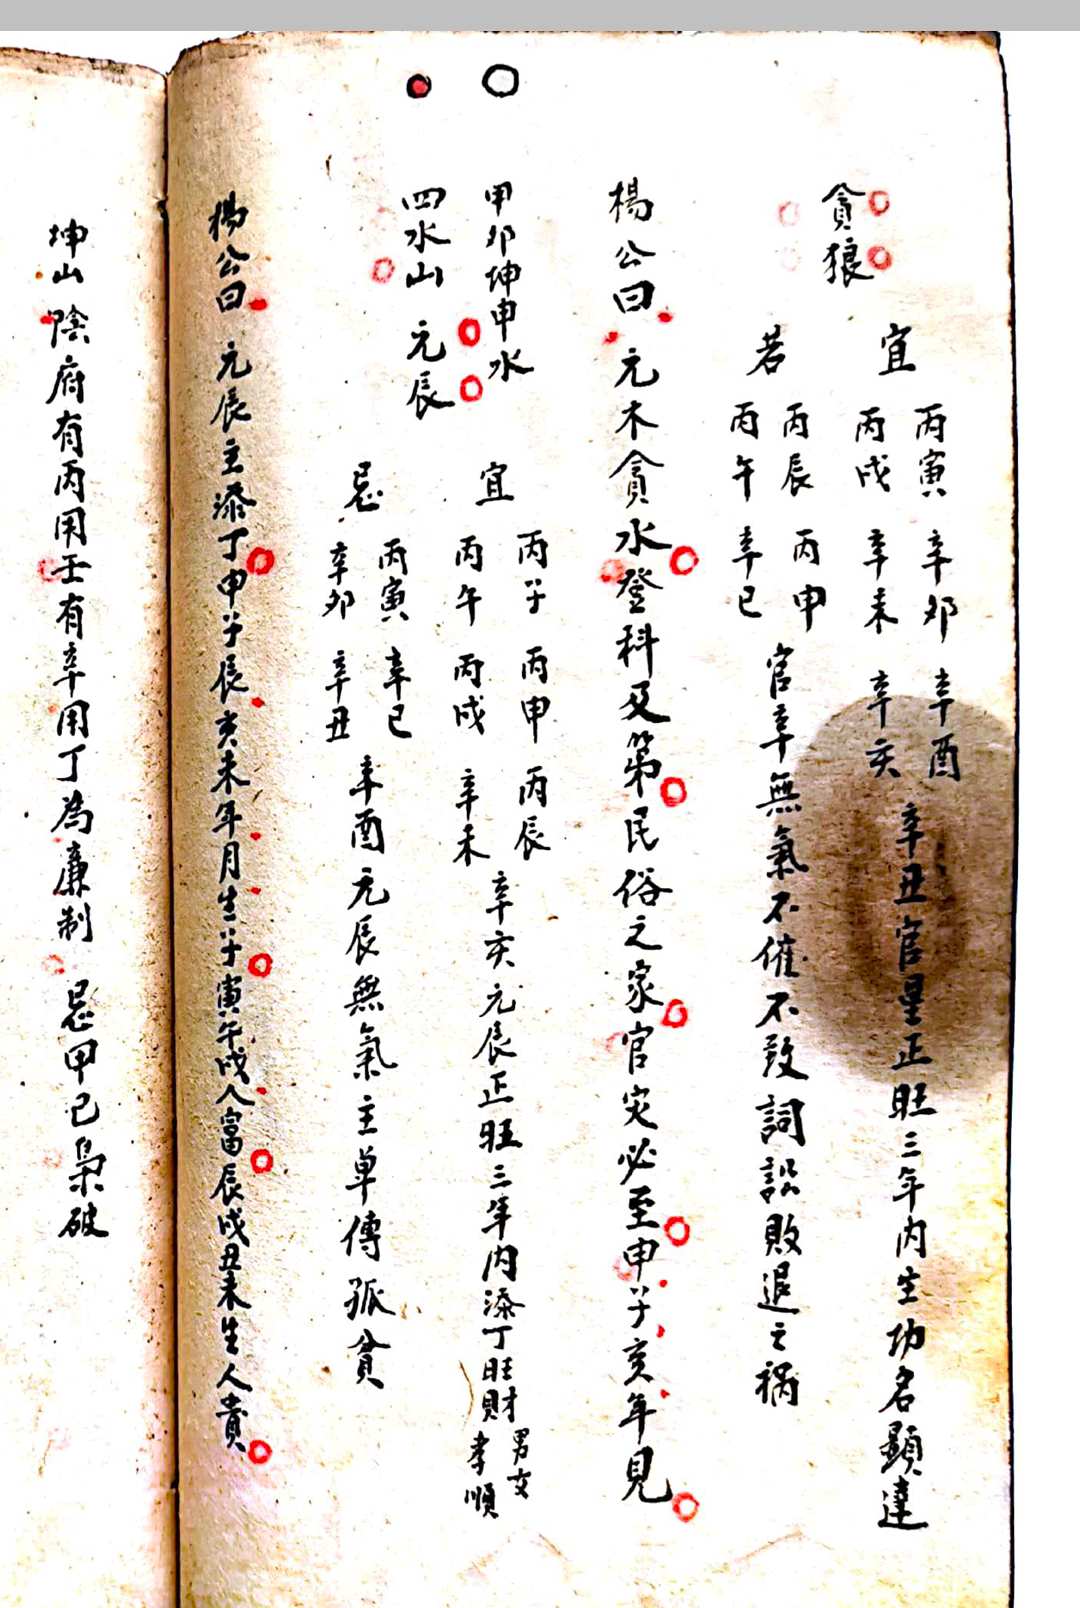 貪狼
宜
丙寅 辛卯 辛酉
丙戌 辛未 辛亥
辛丑官星正旺三年內生功名顯達
若
丙辰 丙申
丙午 辛巳
官辛無氣不催不致詞訟敗退之禍
楊公曰 元木貪水登科及第民俗之家官灾必至申子亥年見
甲卯坤申水
四水山 元辰
宜
丙子 丙申 丙辰
丙午 丙戌 辛未
辛亥元辰正旺三年內添丁旺財
男女
孝順
忌
丙寅 辛巳
辛卯 辛丑
辛酉元辰無氣主单傳孤貧
楊公曰 元辰主添丁申子辰亥未年月生子寅午戌人富辰戌丑未生人貴
坤山 陰府有丙用壬有辛用丁為廉制 忌甲己梟破